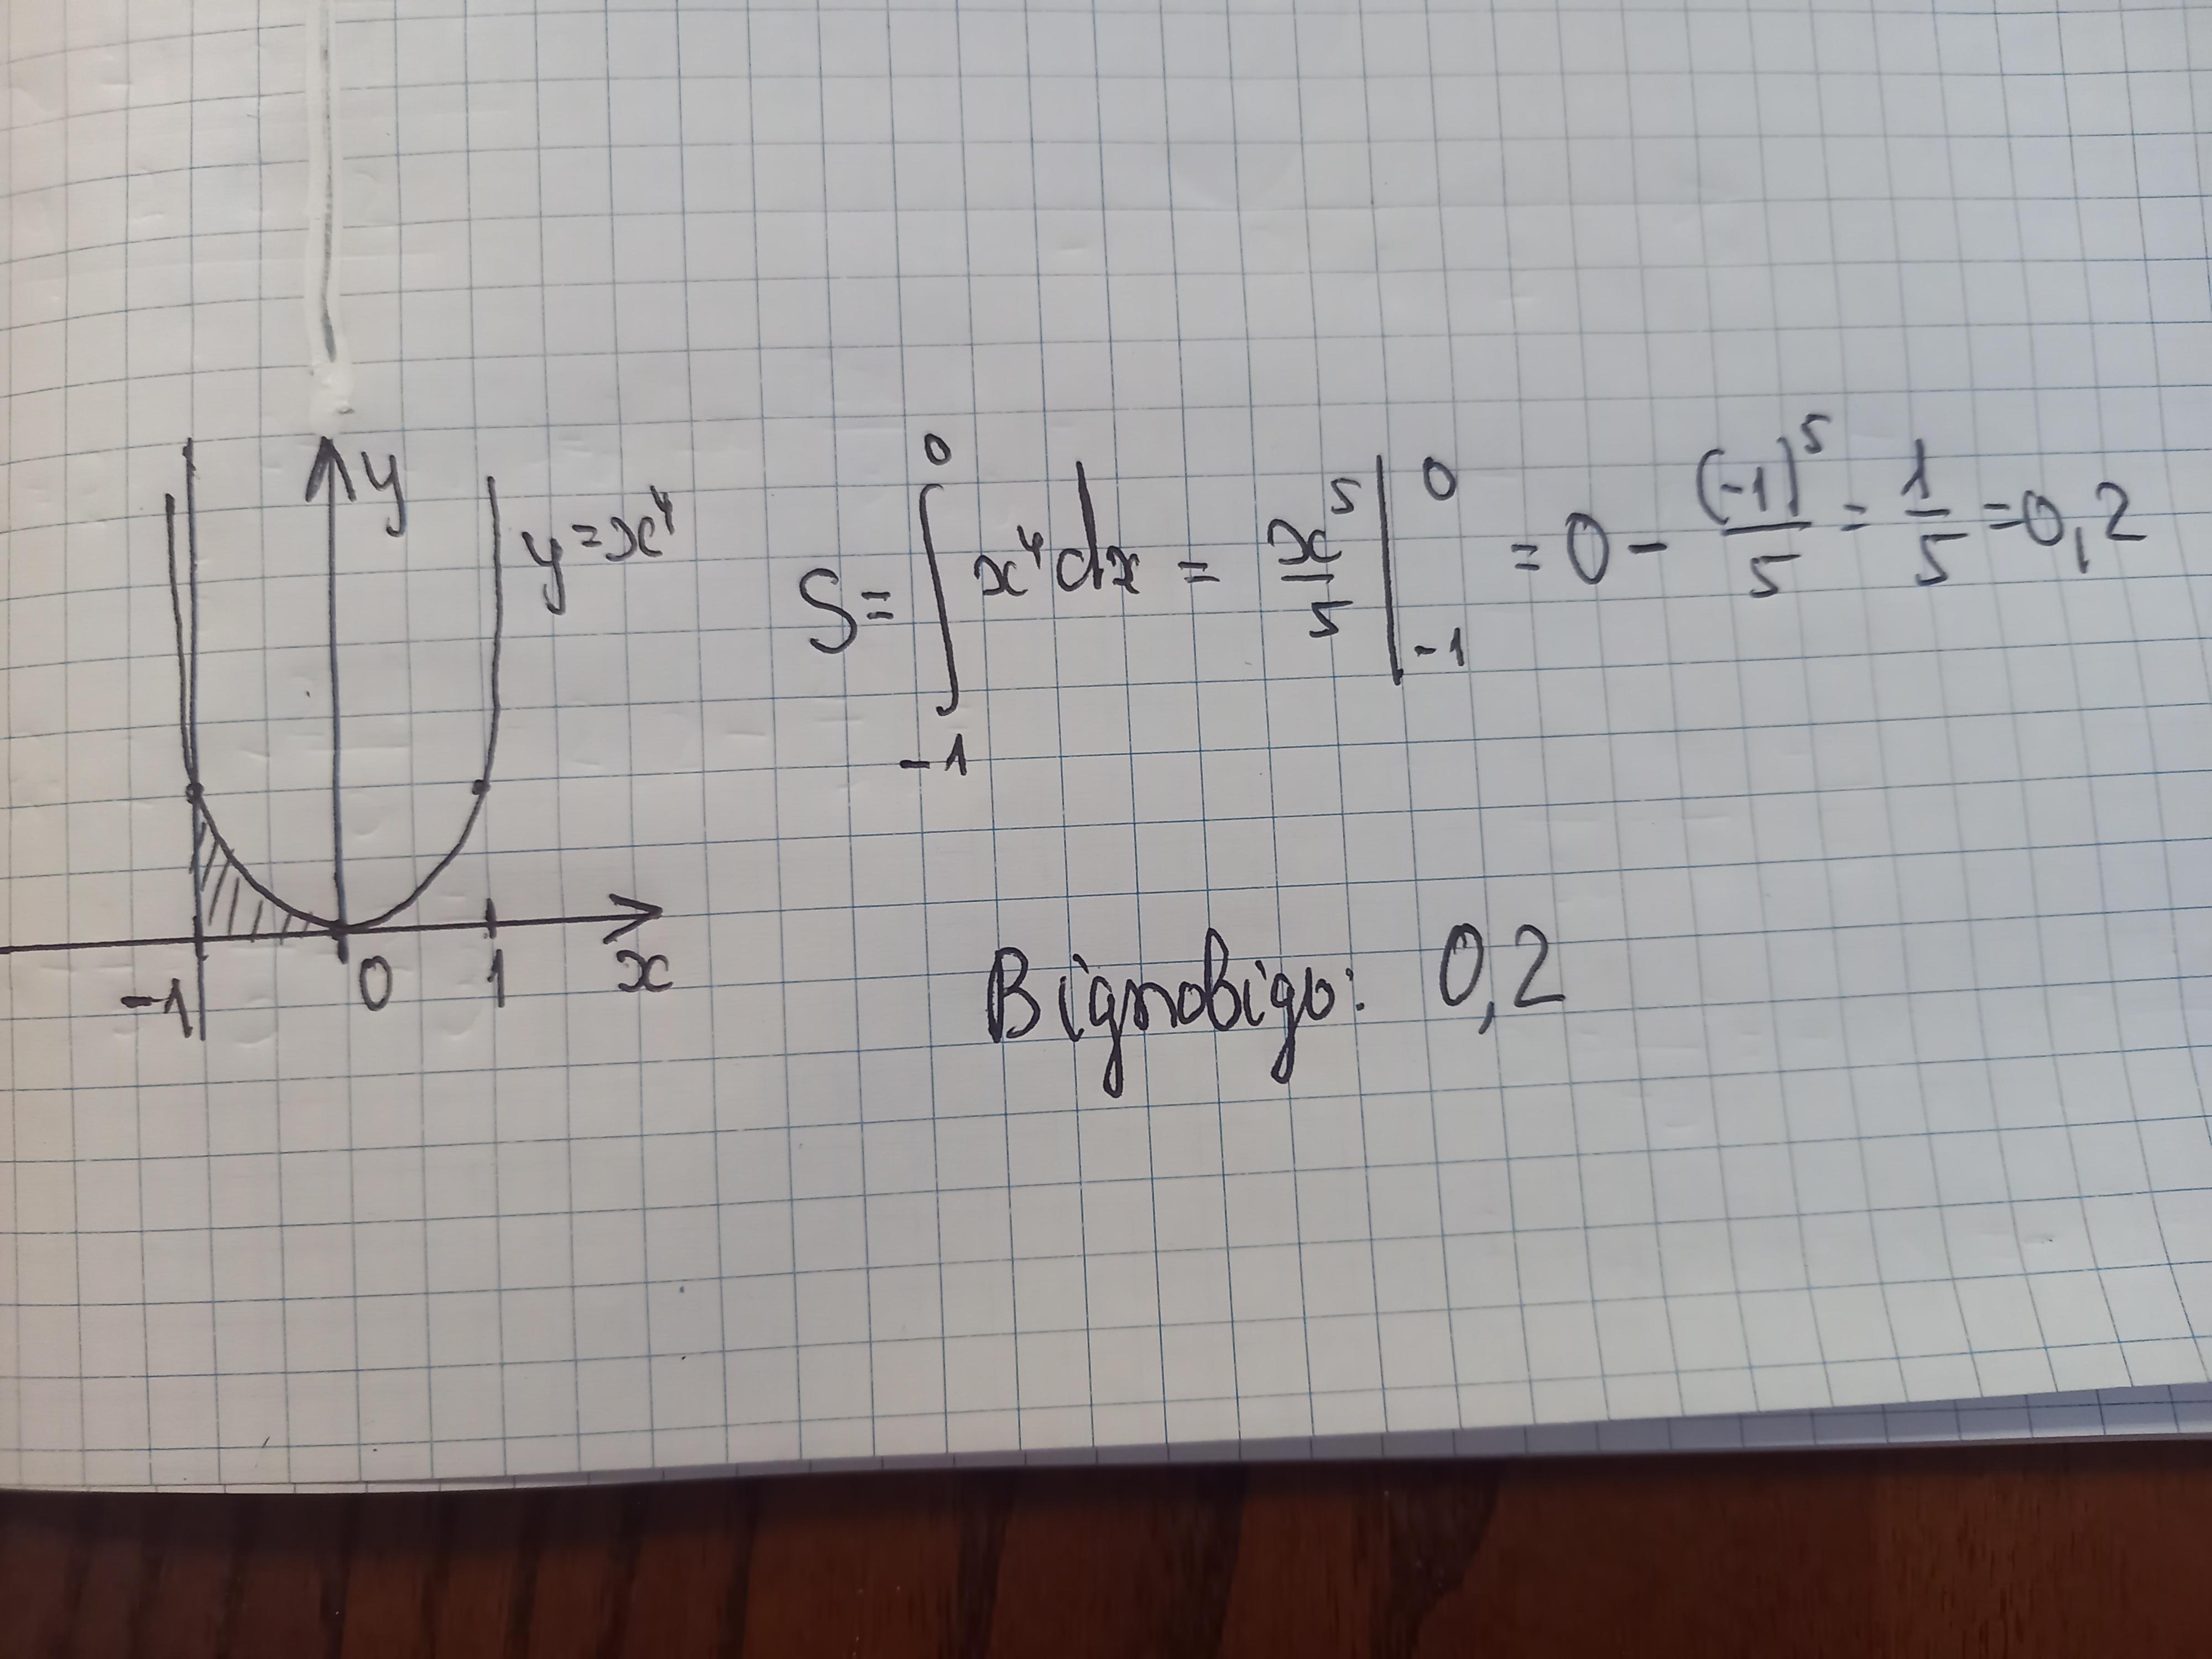 y
y=x⁴
-1 0 1 x
S = ∫₋₁⁰ x⁴dx = x⁵/5 |₋₁⁰ = 0 - (-1)⁵/5 = 1/5 = 0,2
Відповідь: 0,2